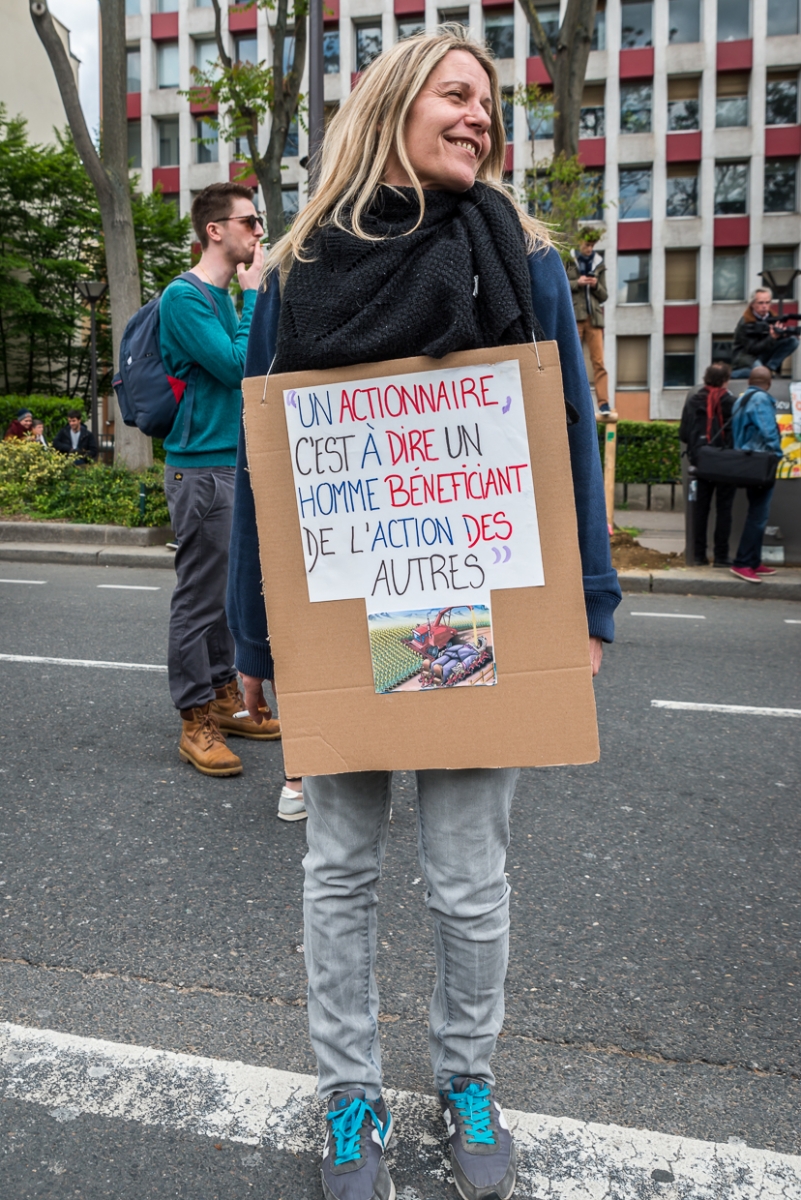 “UN ACTIONNAIRE,
C'EST À DIRE UN
HOMME BÉNEFICIANT
DE L'ACTION DES
AUTRES”